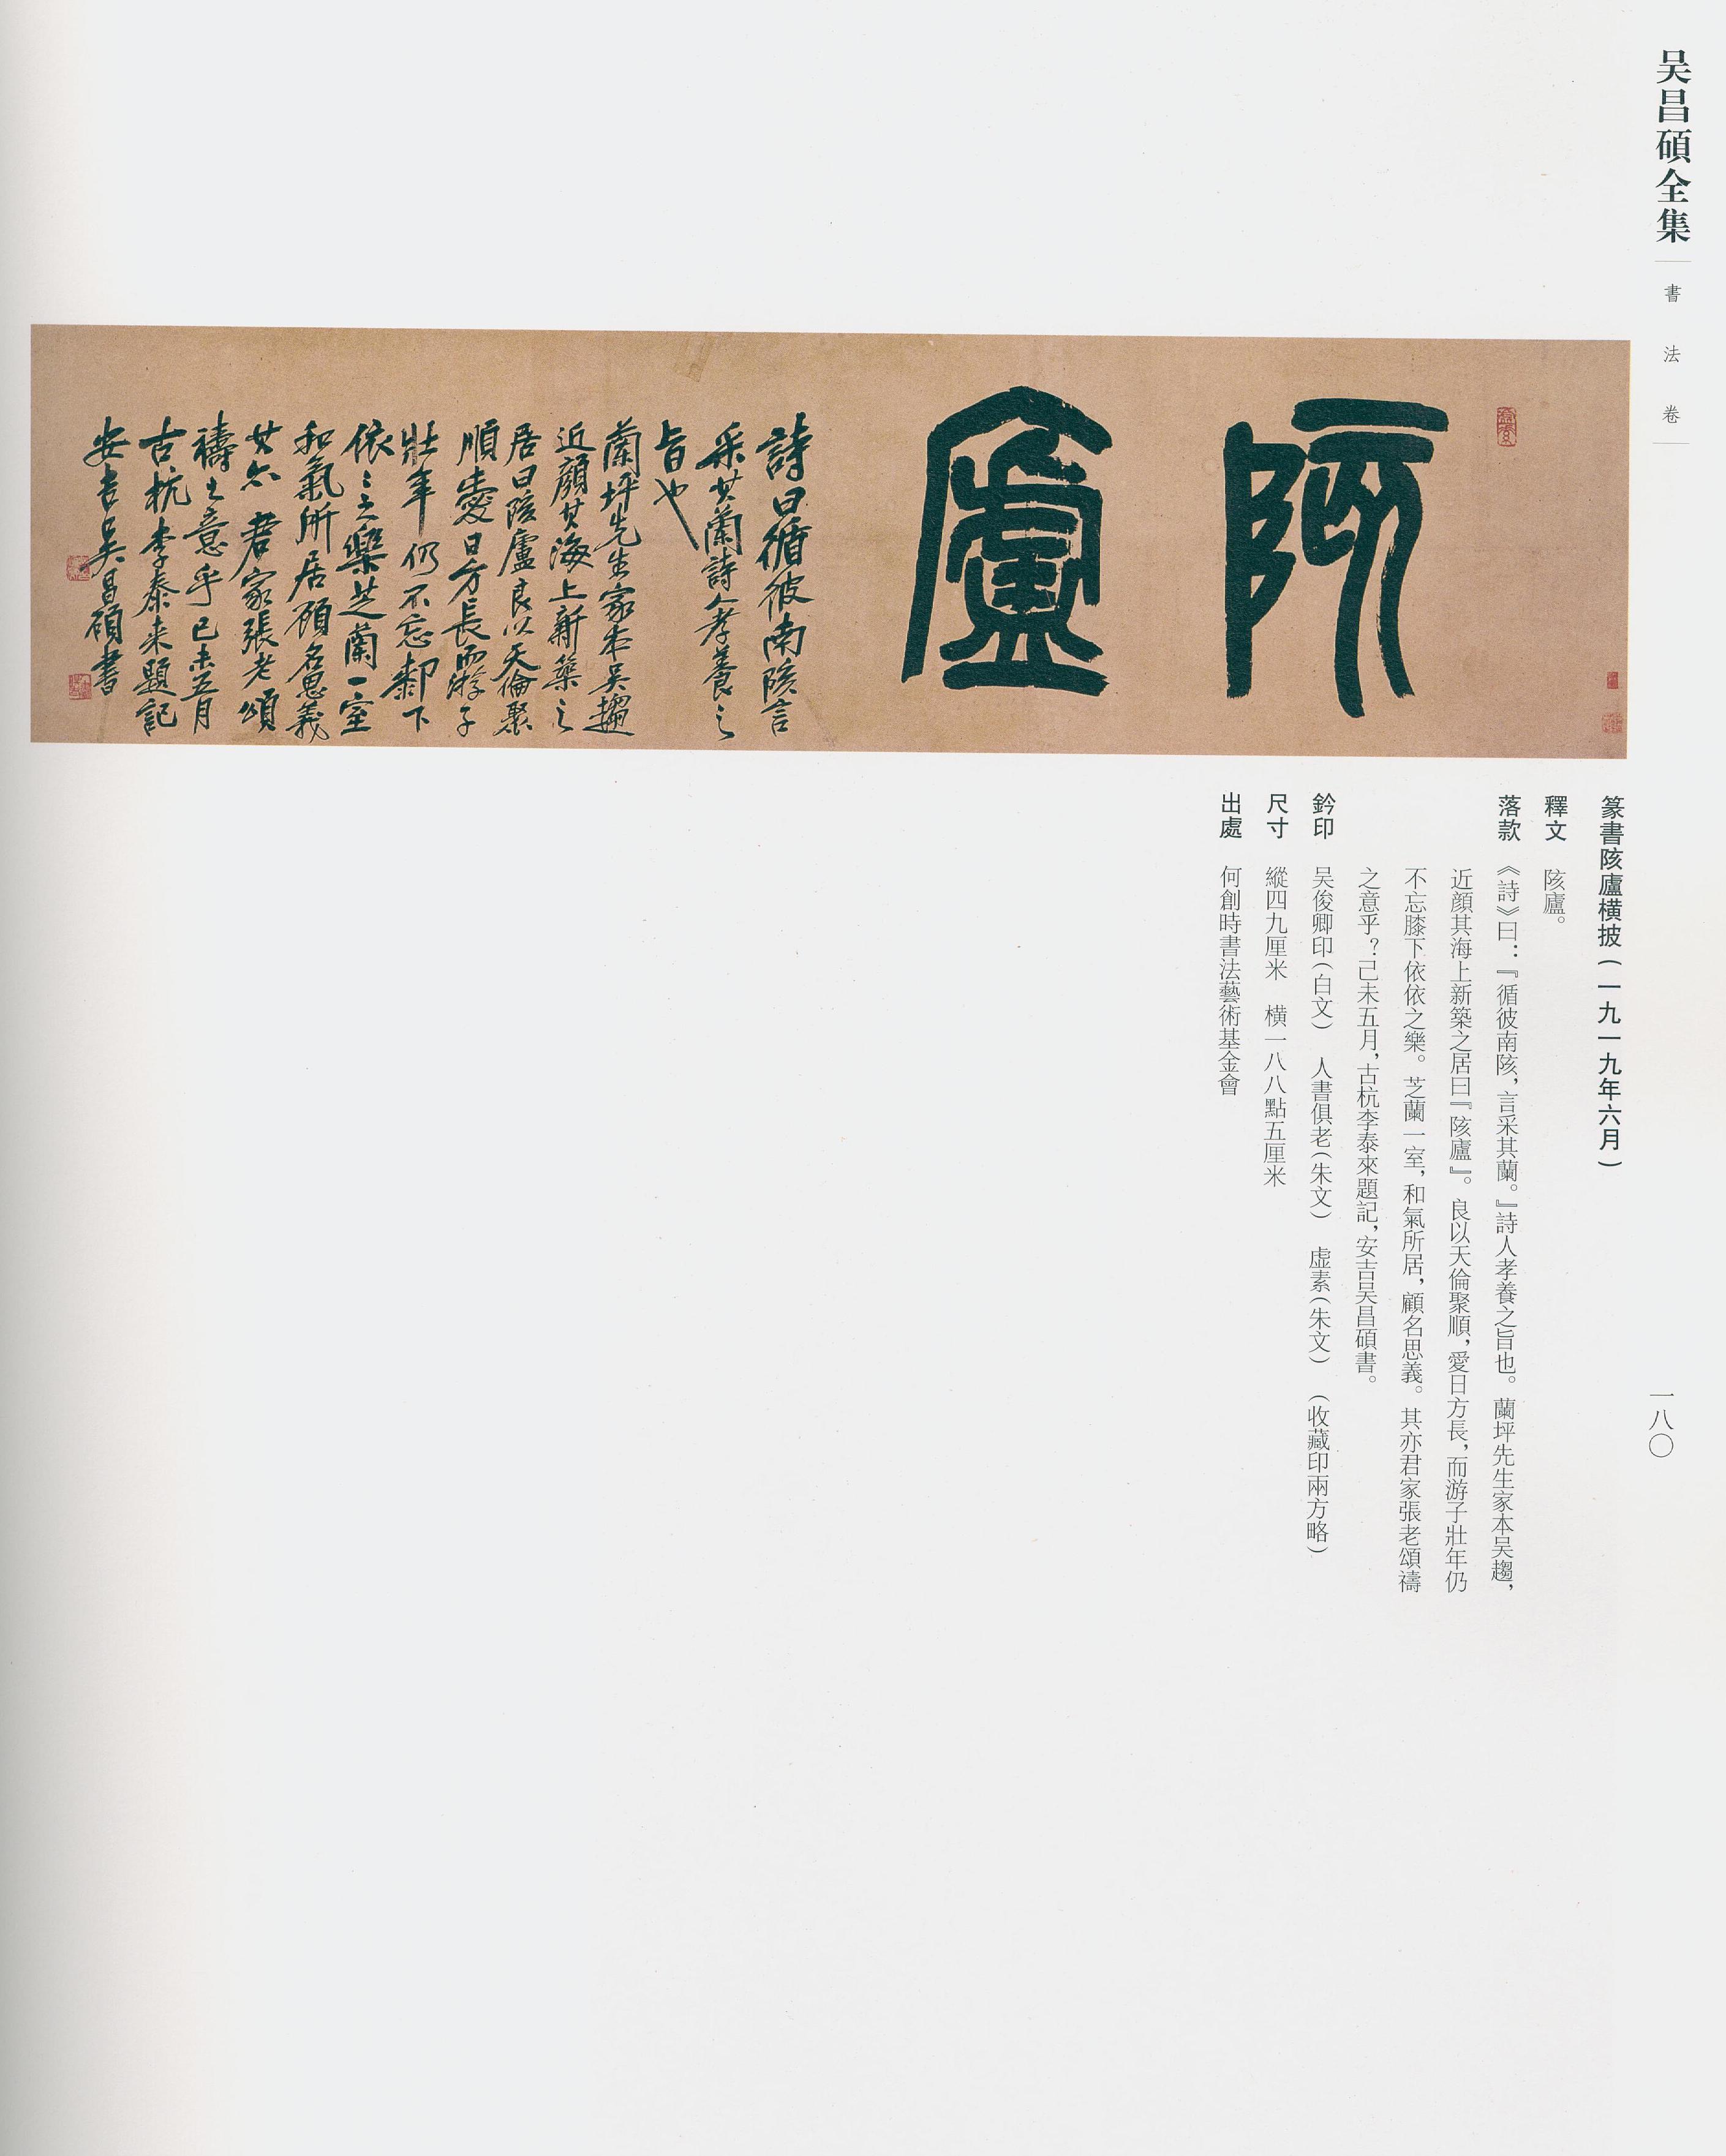 吴昌碩全集
書法卷
陔廬
詩曰循彼南陔言
采其蘭詩人孝養之
旨也
蘭坪先生家本吴趨
近顔其海上新築之
居曰陔廬良以天倫聚
順愛日方長而游子
壯年仍不忘膝下
依〻之樂芝蘭一室
和氣所居顧名思義
其亦君家張老頌
禱之意乎己未五月
古杭李泰来題記
安吉吴昌碩書
篆書陔廬横披(一九一九年六月)
釋文 陔廬。
落款 《詩》曰:『循彼南陔,言采其蘭。』詩人孝養之旨也。蘭坪先生家本吴趨,
近顔其海上新築之居曰『陔廬』。良以天倫聚順,愛日方長,而游子壯年仍
不忘膝下依依之樂。芝蘭一室,和氣所居,顧名思義。其亦君家張老頌禱
之意乎?己未五月,古杭李泰來題記,安吉吴昌碩書。
鈐印 吴俊卿印(白文) 人書俱老(朱文) 虚素(朱文) (收藏印兩方略)
尺寸 縱四九厘米 横一八八點五厘米
出處 何創時書法藝術基金會
一八〇